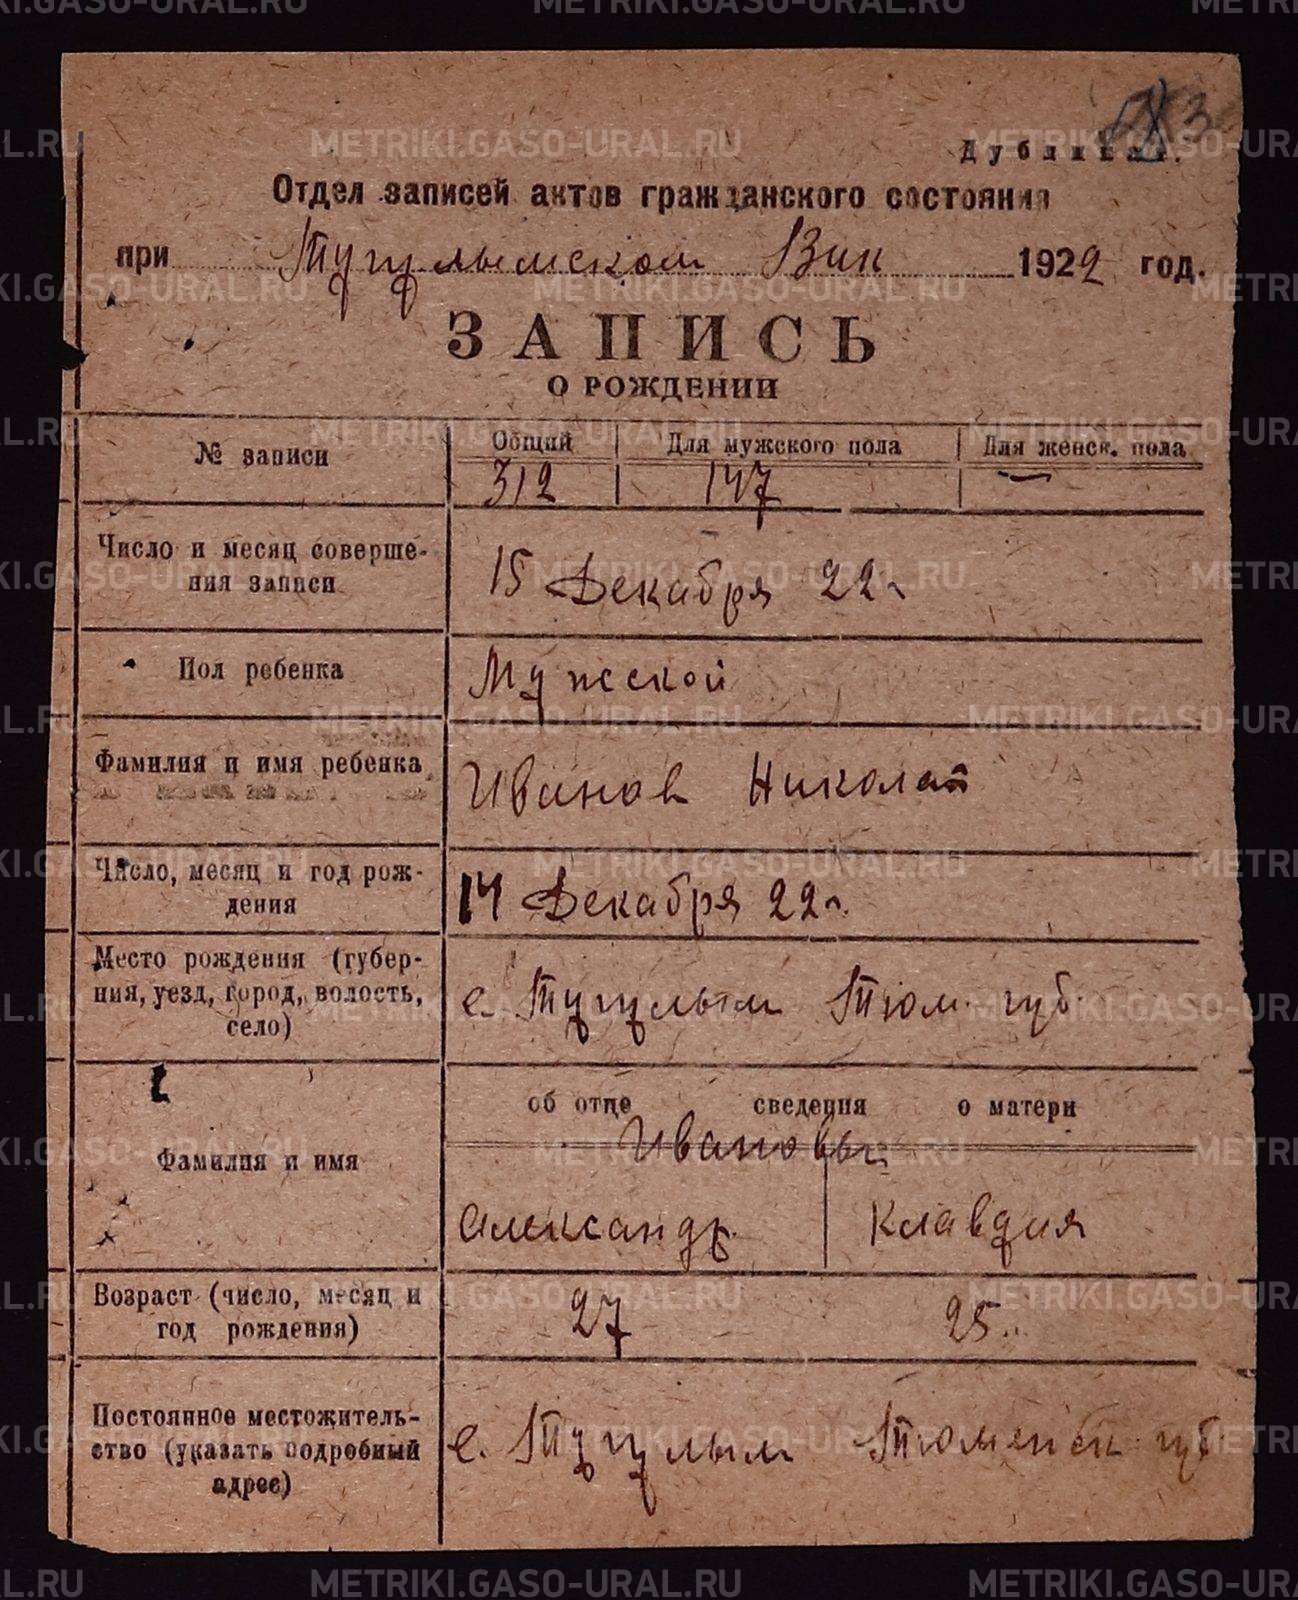 Дубликат.
Отдел записей актов гражданского состояния
при Тугулымском Вик 1922 год.
ЗАПИСЬ
О РОЖДЕНИИ
№ записи
Общий Для мужского пола Для женск. пола
312 147 —
Число и месяц соверше-
ния записи
15 Декабря 22 г
Пол ребенка
Мужской
Фамилия и имя ребенка
Иванов Николай
Число, месяц и год рож-
дения
14 Декабря 22 г.
Место рождения (губер-
ния, уезд, город, волость,
село)
с. Тугулым Тюм. губ.
об отце сведения о матери
Ивановы
Фамилия и имя
Александр Клавдия
Возраст (число, месяц и
год рождения)
27 25
Постоянное местожитель-
ство (указать подробный
адрес)
с. Тугулым Тюменск губ
METRIKI.GASO-URAL.RU